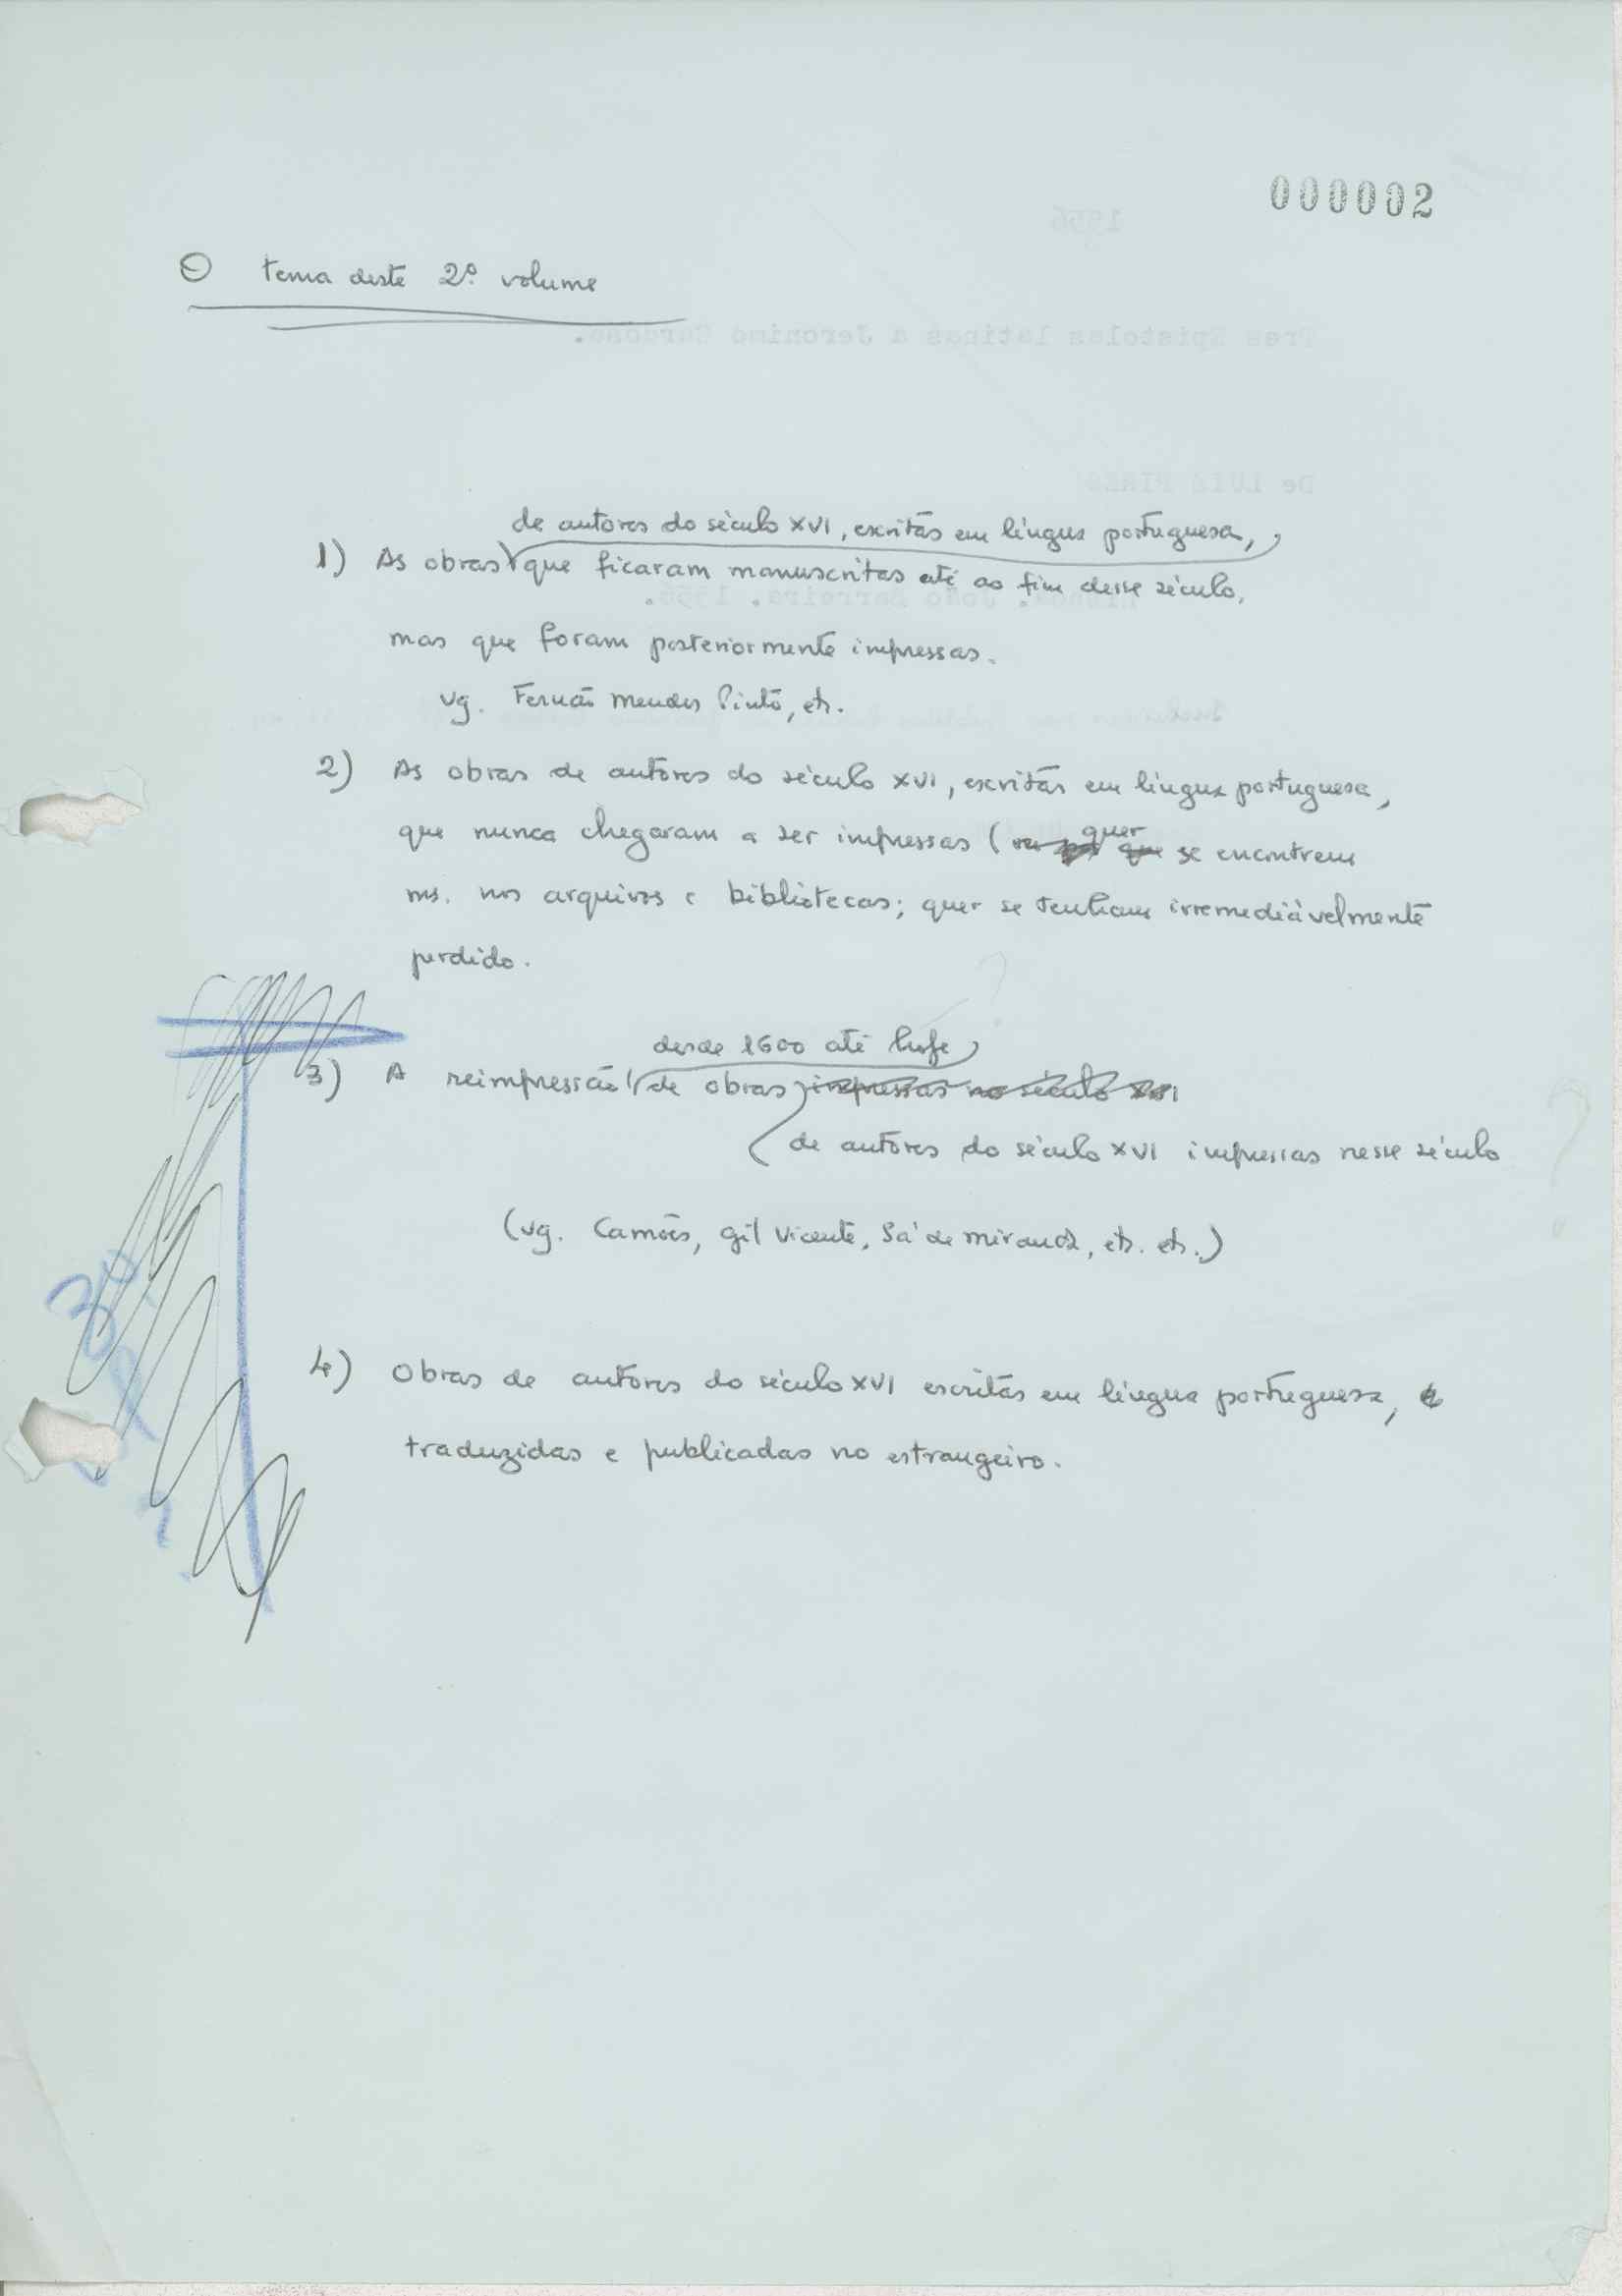 000002
O tema deste 2º volume
de autores do século XVI, escritas em língua portuguesa,
1) As obras que ficaram manuscritas até ao fim desse século,
mas que foram posteriormente impressas.
vg. Fernão Mendes Pinto, etc.
2) As obras de autores do século XVI, escritas em língua portuguesa,
que nunca chegaram a ser impressas (quer se encontrem
ms. nos arquivos e bibliotecas; quer se tenham irremediàvelmente
perdido.
desde 1600 até hoje
3) A reimpressão de obras impressas no século XVI
de autores do século XVI impressas nesse século
(vg. Camões, Gil Vicente, Sá de Miranda, etc. etc.)
3º
4) Obras de autores do século XVI escritas em língua portuguesa, e
traduzidas e publicadas no estrangeiro.